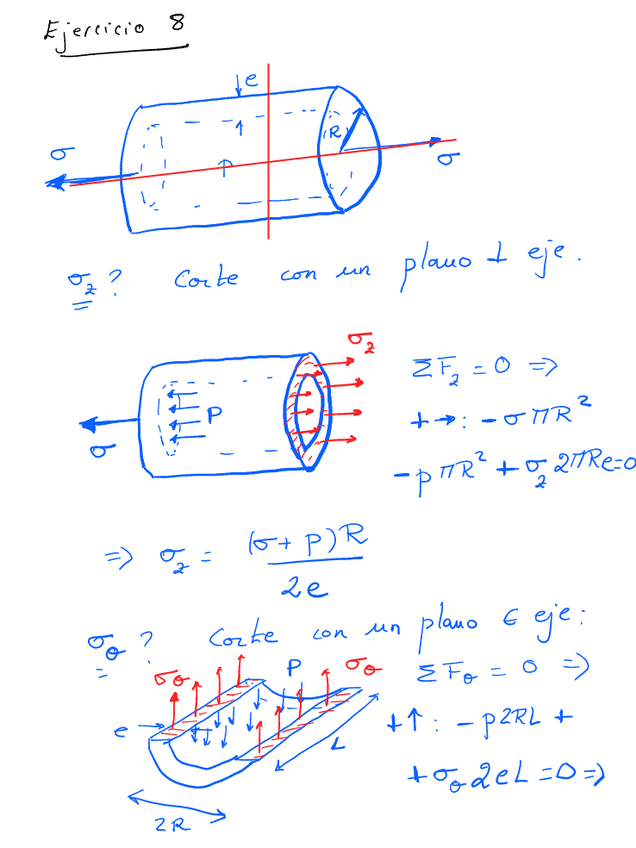 Ejercicio 8
e
R
σ
σ
σ_z? Corte con un plano ⊥ eje.
σ_z
ΣF_z = 0 =>
P
+→: -σπR²
σ
-pπR² + σ_z 2πRe=0
=> σ_z = (σ+p)R / 2e
σ_θ? Corte con un plano ∈ eje:
σ_θ P σ_θ
ΣF_θ = 0 =>
e
+↑: -p2RL +
L
+σ_θ 2eL=0 =>
2R